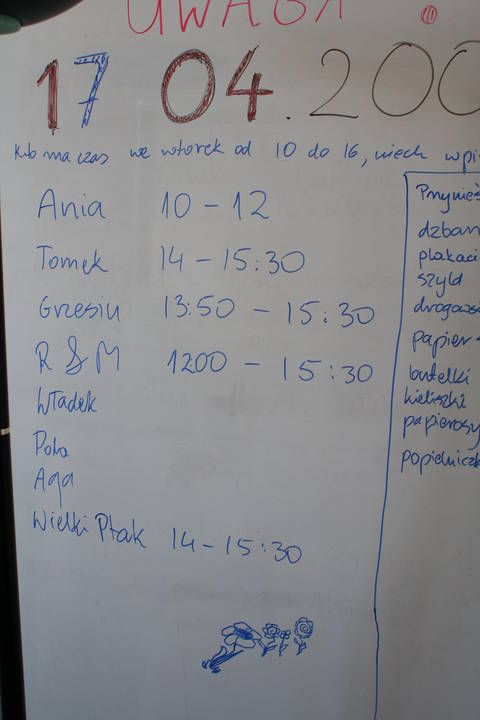 UWAGA !
17 04.200
Kto ma czas we wtorek od 10 do 16, niech wpi
Ania 10 - 12
Tomek 14 - 15:30
Grzesiu 13:50 - 15:30
R & M 1200 - 15:30
Władek
Pola
Aga
Wielki Ptak 14 - 15:30
Przynieś
dzban
plakaci
szyld
drogows
papier
butelki
kieliszki
papierosy
popielniczk